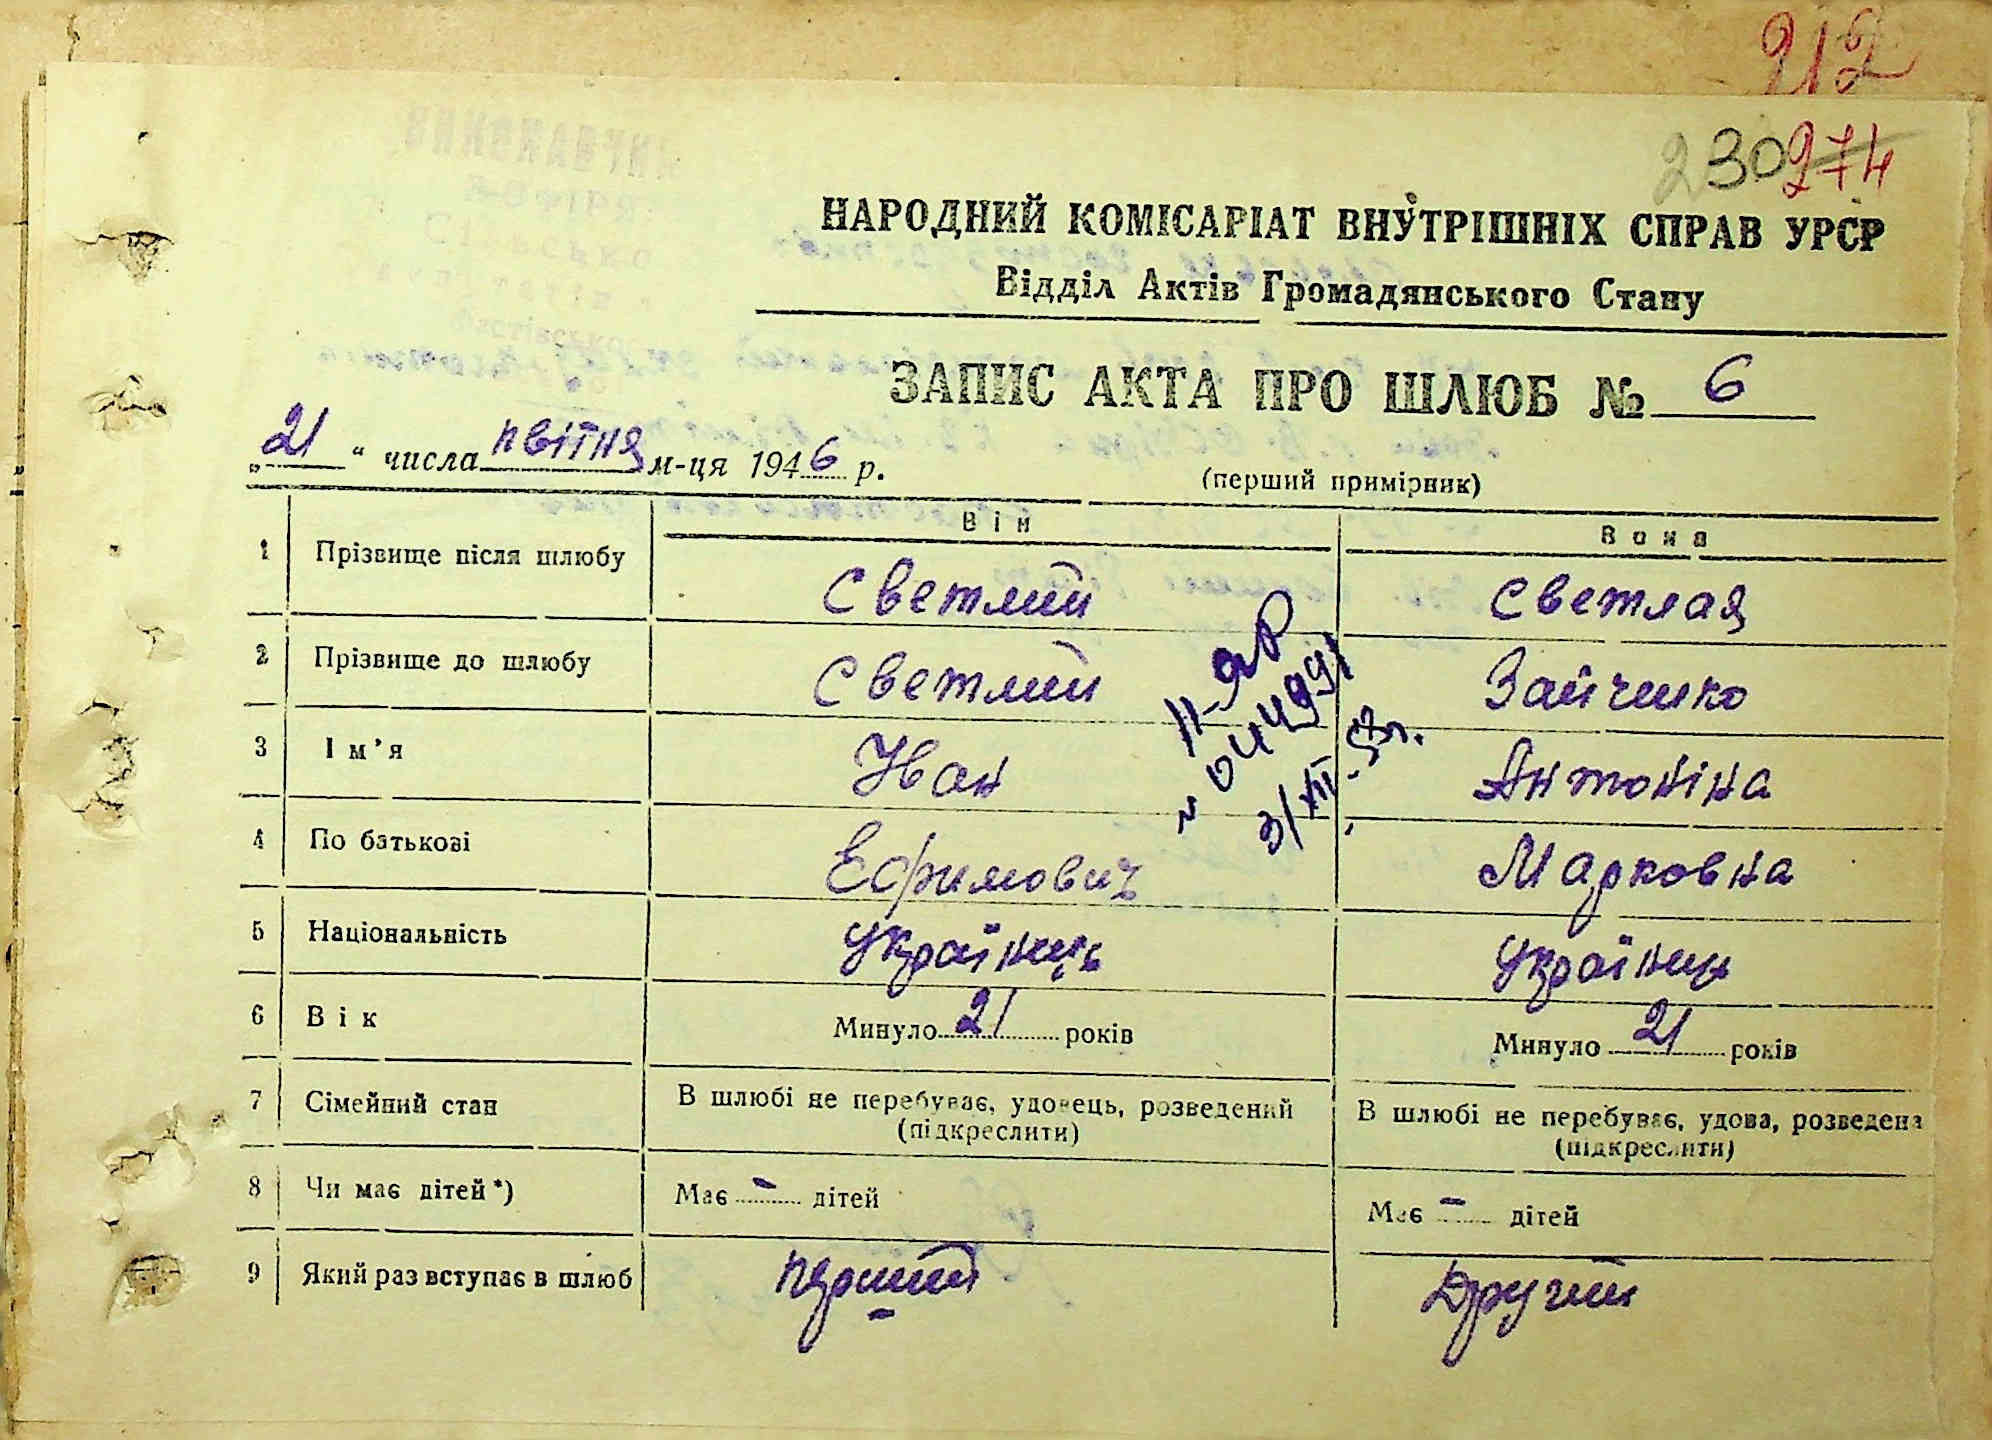 212
230 274
НАРОДНИЙ КОМІСАРІАТ ВНУТРІШНІХ СПРАВ УРСР
Відділ Актів Громадянського Стану
ЗАПИС АКТА ПРО ШЛЮБ № 6
„21“ числа квітня м-ця 1946 р.
(перший примірник)
Він Вона
1 Прізвище після шлюбу Светлий Светлая
2 Прізвище до шлюбу Светлий Зайченко
3 Ім’я Иван Антоніна
4 По батькові Ефимович Марковна
II-ЯР
№ 044991
31/XII-53г.
5 Національність Українець Українець
6 Вік Минуло 21 років Минуло 21 років
7 Сімейний стан В шлюбі не перебуває, удовець, розведений В шлюбі не перебуває, удова, розведена
(підкреслити) (підкреслити)
8 Чи має дітей*) Має – дітей Має – дітей
9 Який раз вступає в шлюб перший Другий